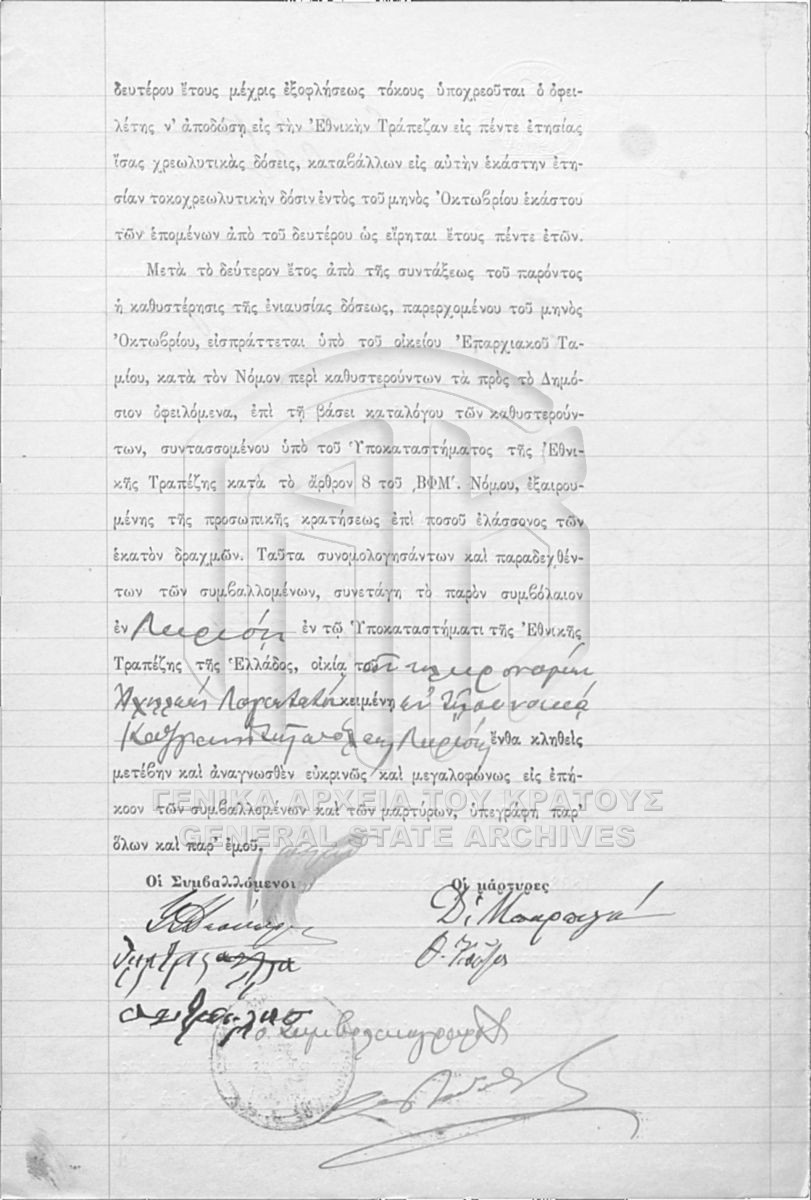 δευτέρου ἔτους μέχρις ἐξοφλήσεως τόκους ὑποχρεοῦται ὁ ὀφει-
λέτης ν' ἀποδώσῃ εἰς τὴν Ἐθνικὴν Τράπεζαν εἰς πέντε ἐτησίας
ἴσας χρεωλυτικὰς δόσεις, καταβάλλων εἰς αὐτὴν ἑκάστην ἐτη-
σίαν τοκοχρεωλυτικὴν δόσιν ἐντὸς τοῦ μηνὸς Ὀκτωβρίου ἑκάστου
τῶν ἑπομένων ἀπὸ τοῦ δευτέρου ὡς εἴρηται ἔτους πέντε ἐτῶν.
Μετὰ τὸ δεύτερον ἔτος ἀπὸ τῆς συντάξεως τοῦ παρόντος
ἡ καθυστέρησις τῆς ἐνιαυσίας δόσεως, παρερχομένου τοῦ μηνὸς
Ὀκτωβρίου, εἰσπράττεται ὑπὸ τοῦ οἰκείου Ἐπαρχιακοῦ Τα-
μίου, κατὰ τὸν Νόμον περὶ καθυστερούντων τὰ πρὸς τὸ Δημό-
σιον ὀφειλόμενα, ἐπὶ τῇ βάσει καταλόγου τῶν καθυστερούν-
των, συντασσομένου ὑπὸ τοῦ Ὑποκαταστήματος τῆς Ἐθνι-
κῆς Τραπέζης κατὰ τὸ ἄρθρον 8 τοῦ ͵ΒΦΜ'. Νόμου, ἐξαιρου-
μένης τῆς προσωπικῆς κρατήσεως ἐπὶ ποσοῦ ἐλάσσονος τῶν
ἑκατὸν δραχμῶν. Ταῦτα συνομολογησάντων καὶ παραδεχθέν-
των τῶν συμβαλλομένων, συνετάγη τὸ παρὸν συμβόλαιον
ἐν Λαρίσῃ ἐν τῷ Ὑποκαταστήματι τῆς Ἐθνικῆς
Τραπέζης τῆς Ἑλλάδος, οἰκίᾳ τοῦ κληρονομ
κειμένῃ
Λαρίσῃ ἔνθα κληθεὶς
μετέβην καὶ ἀναγνωσθὲν εὐκρινῶς καὶ μεγαλοφώνως εἰς ἐπή-
κοον τῶν συμβαλλομένων καὶ τῶν μαρτύρων, ὑπεγράφη παρ'
ὅλων καὶ παρ' ἐμοῦ.
ΓΕΝΙΚΑ ΑΡΧΕΙΑ ΤΟΥ ΚΡΑΤΟΥΣ
GENERAL STATE ARCHIVES
Οἱ Συμβαλλόμενοι Οἱ μάρτυρες
Ὁ Συμβολαιογράφος